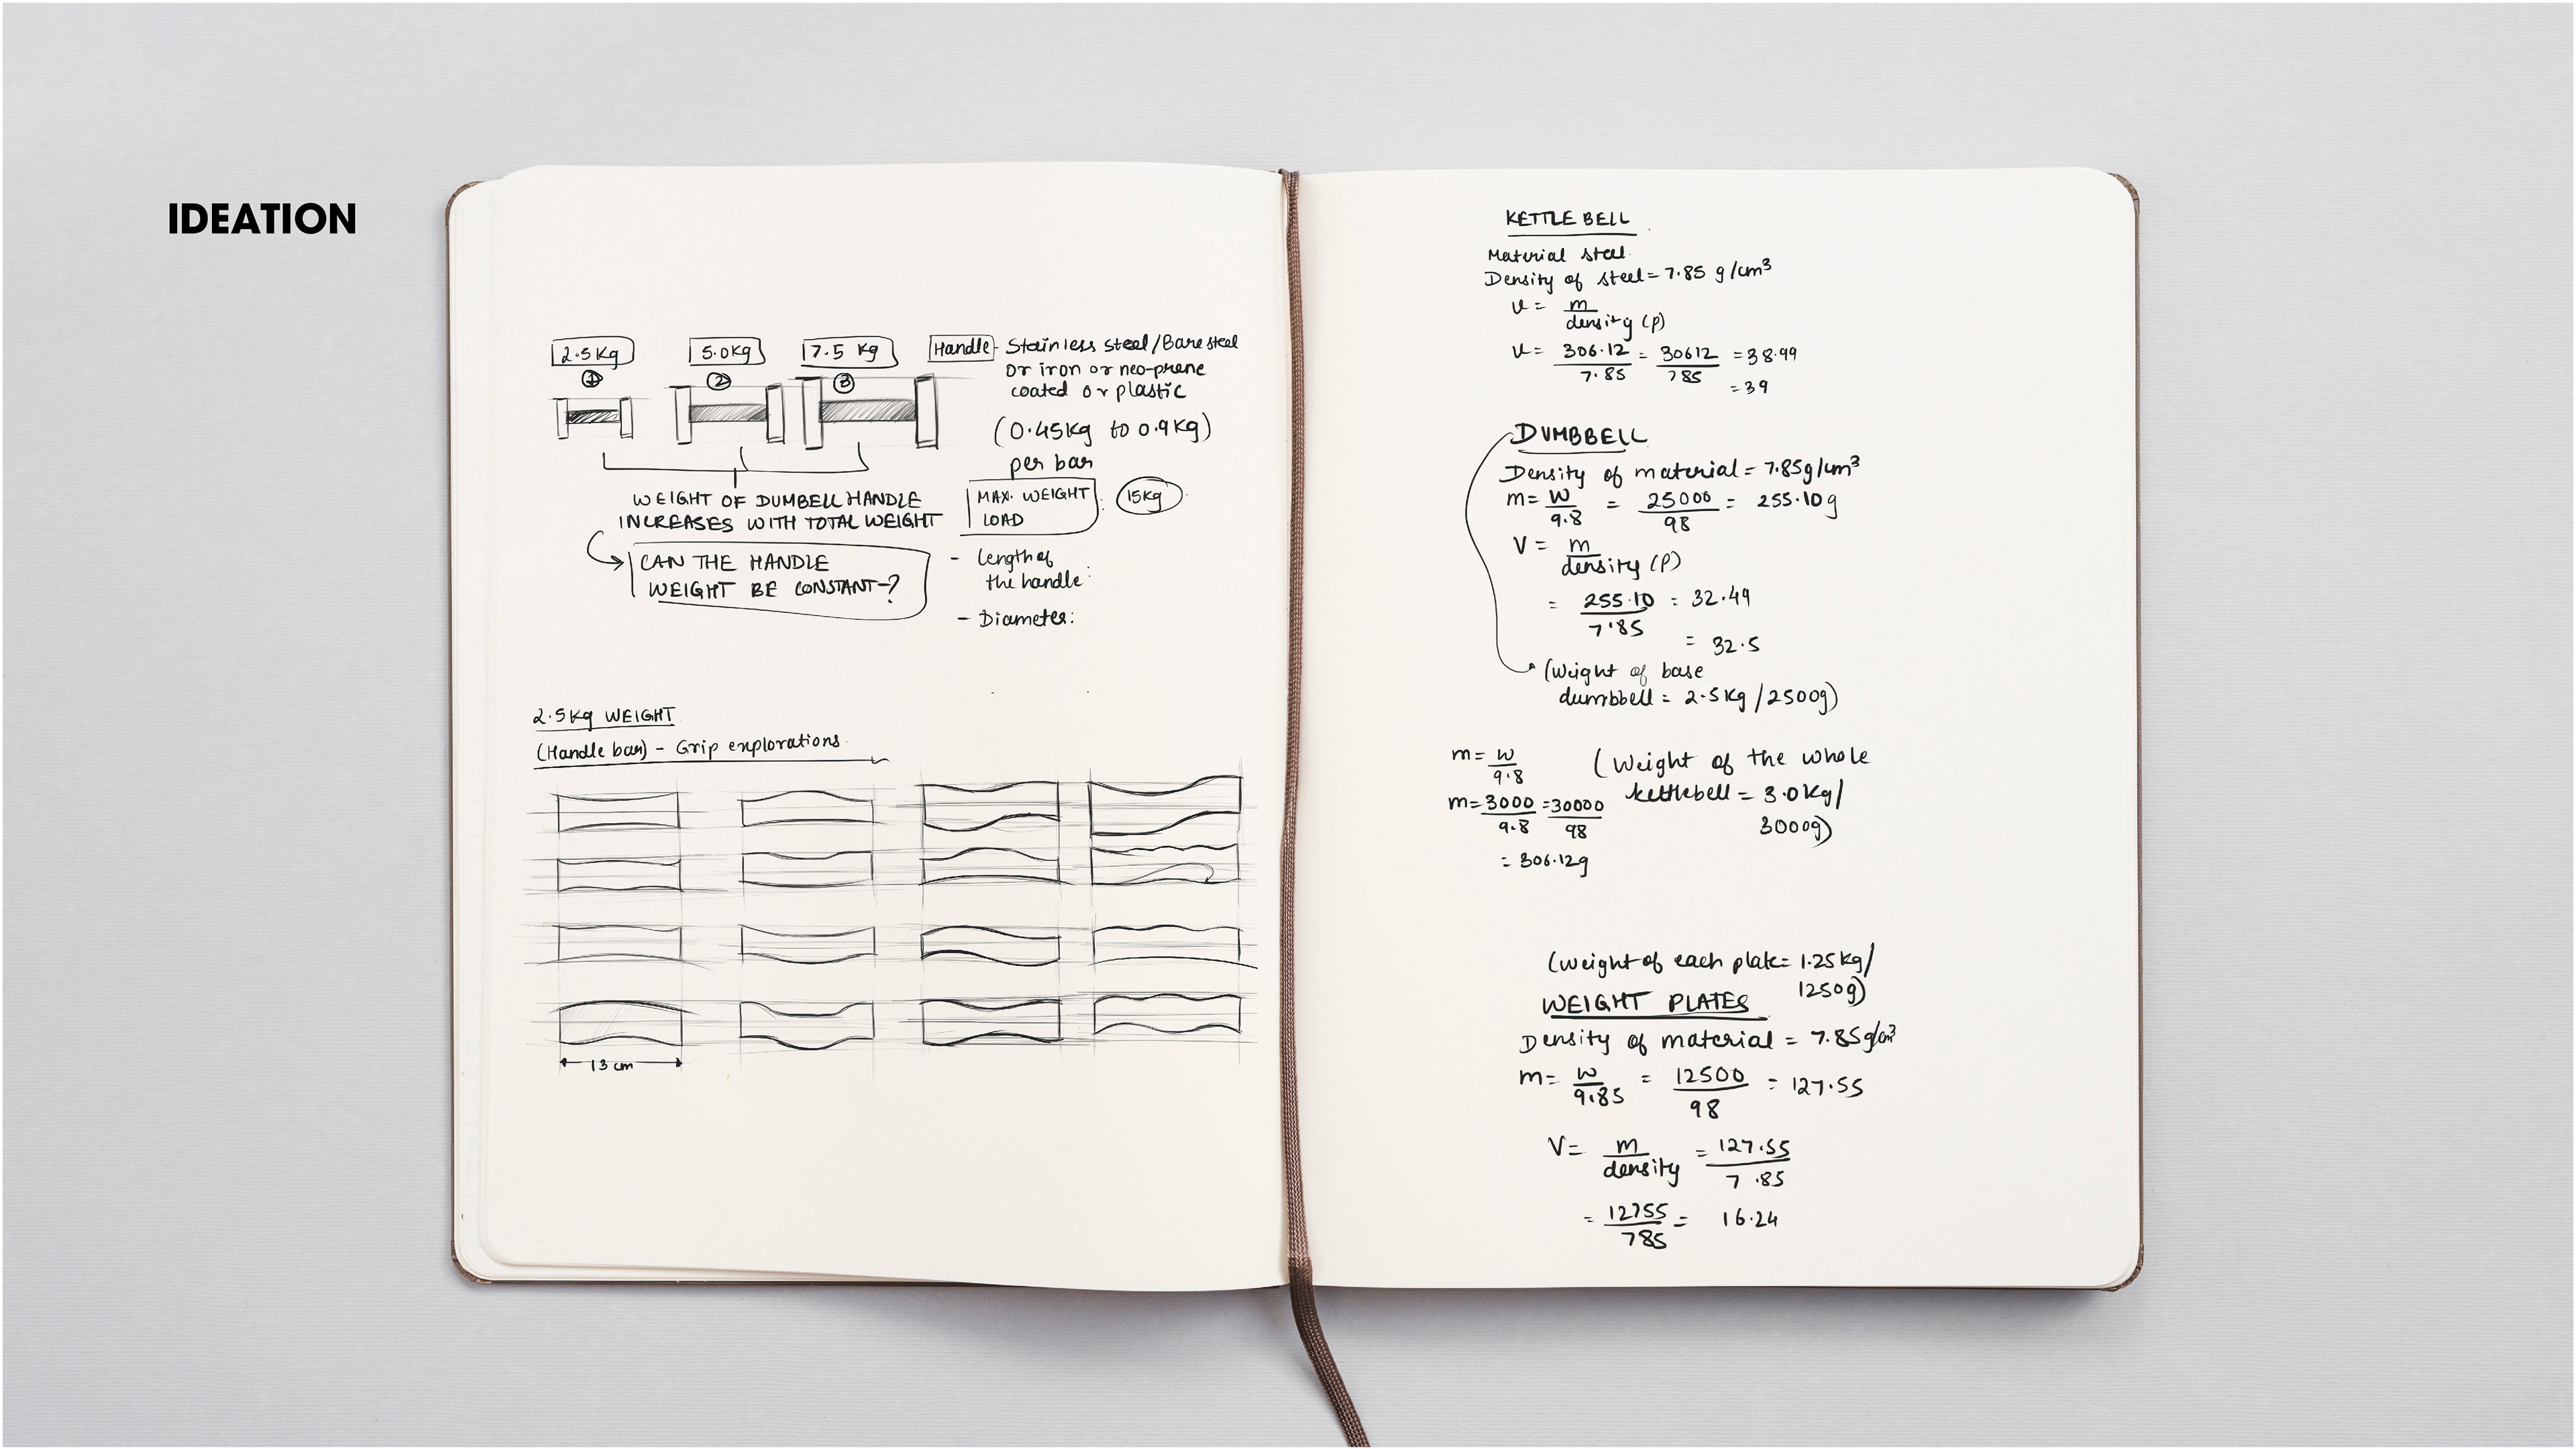 IDEATION
2.5Kg
5.0Kg
7.5 Kg
1
2
3
WEIGHT OF DUMBELL HANDLE
INCREASES WITH TOTAL WEIGHT
CAN THE HANDLE
WEIGHT BE CONSTANT-?
Handle - Stainless steel/Bare steel
or iron or neo-prene
coated or plastic
(0.45Kg to 0.9Kg)
per bar
MAX. WEIGHT : 15Kg
LOAD
- Length of
the handle:
- Diameter:
2.5Kg WEIGHT
(Handle bar) - Grip explorations
13 cm
KETTLE BELL
Material steel.
Density of steel = 7.85 g/cm³
v = m
density (p)
v = 306.12 = 30612 = 38.99
7.85 785
= 39
DUMBBELL
Density of material = 7.85g/cm³
m = w = 25000 = 255.10g
9.8 98
V = m
density (p)
= 255.10 = 32.49
7.85
= 32.5
(Weight of base
dumbbell = 2.5Kg/2500g)
m = w
9.8
m = 3000 = 30000
9.8 98
= 306.12g
(Weight of the whole
kettlebell = 3.0Kg/
3000g)
(Weight of each plate = 1.25Kg/
1250g)
WEIGHT PLATES
Density of material = 7.85g/cm³
m = w = 12500 = 127.55
9.85 98
V = m = 127.55
density 7.85
= 12755 = 16.24
785